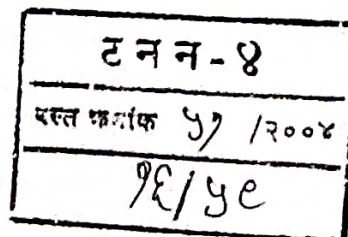 ट न न - ४
दस्त क्रमांक ५१ /२००४
१६/५९